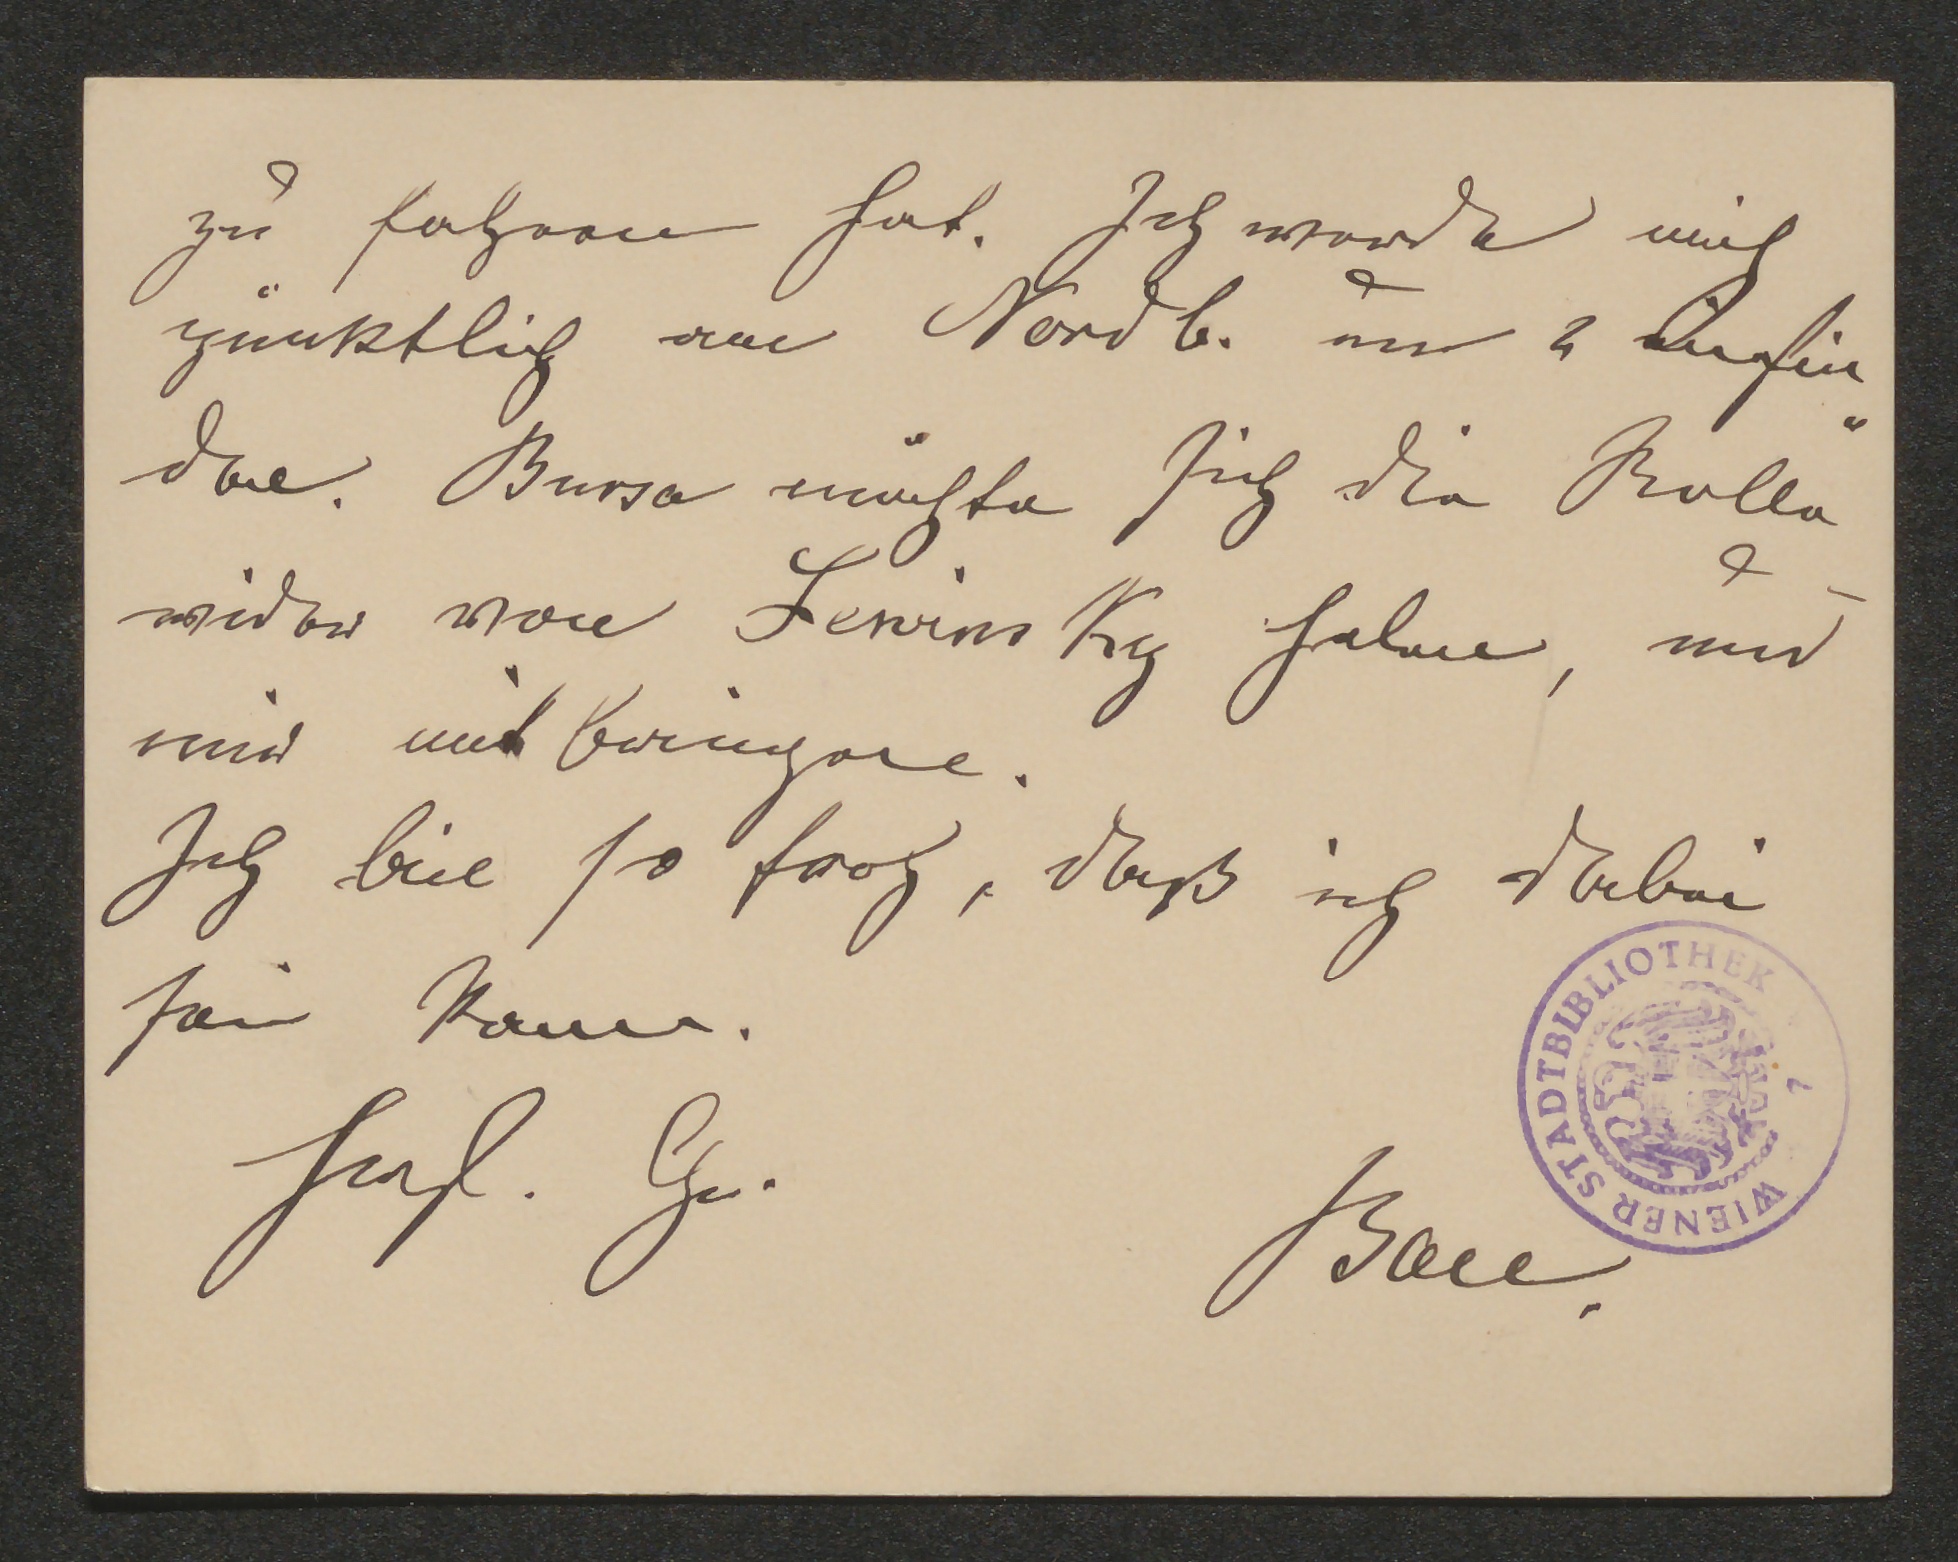 zu fahren hat. Ich werde mich
pünktlich am Nordb. um 2 einfin
den. Bursa möchte sich die Rolle
wider von Lewinsky holen, und
mir mitbringen.
Ich bin so froh, daß ich dabei
sein kann.
Herzl. Gr.
WIENER STADTBIBLIOTHEK